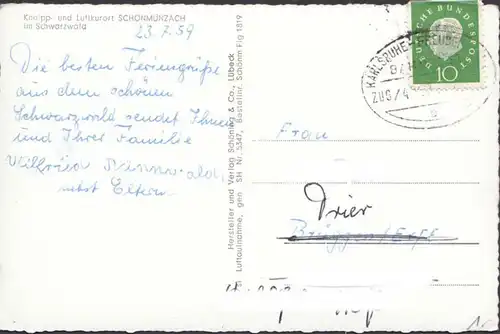 Kneipp- und Luftkurort SCHÖNMÜNZACH
im Schwarzwald
23.7.59
Die besten Feriengrüße
aus dem schönen
Schwarzwald sendet Ihnen
und Ihrer Familie
Wilfried
nebst Eltern
Hersteller und Verlag Schöning & Co., Lübeck
Luftaufnahme, gen SH Nr. 5347, Bestellnr. Schönm Flg 1819
DEUTSCHE BUNDESPOST
10
KARLSRUHE
ZUG/4
Frau
Trier